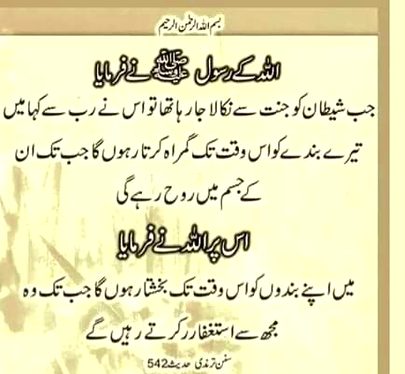 بسم اللہ الرحمٰن الرحیم
اللہ کے رسول ﷺ نے فرمایا
جب شیطان کو جنت سے نکالا جا رہا تھا تو اس نے رب سے کہا میں
تیرے بندے کو اس وقت تک گمراہ کرتا رہوں گا جب تک ان
کے جسم میں روح رہے گی
اس پر اللہ نے فرمایا
میں اپنے بندوں کو اس وقت تک بخشتا رہوں گا جب تک وہ
مجھ سے استغفار کرتے رہیں گے
سنن ترمذی حدیث 542